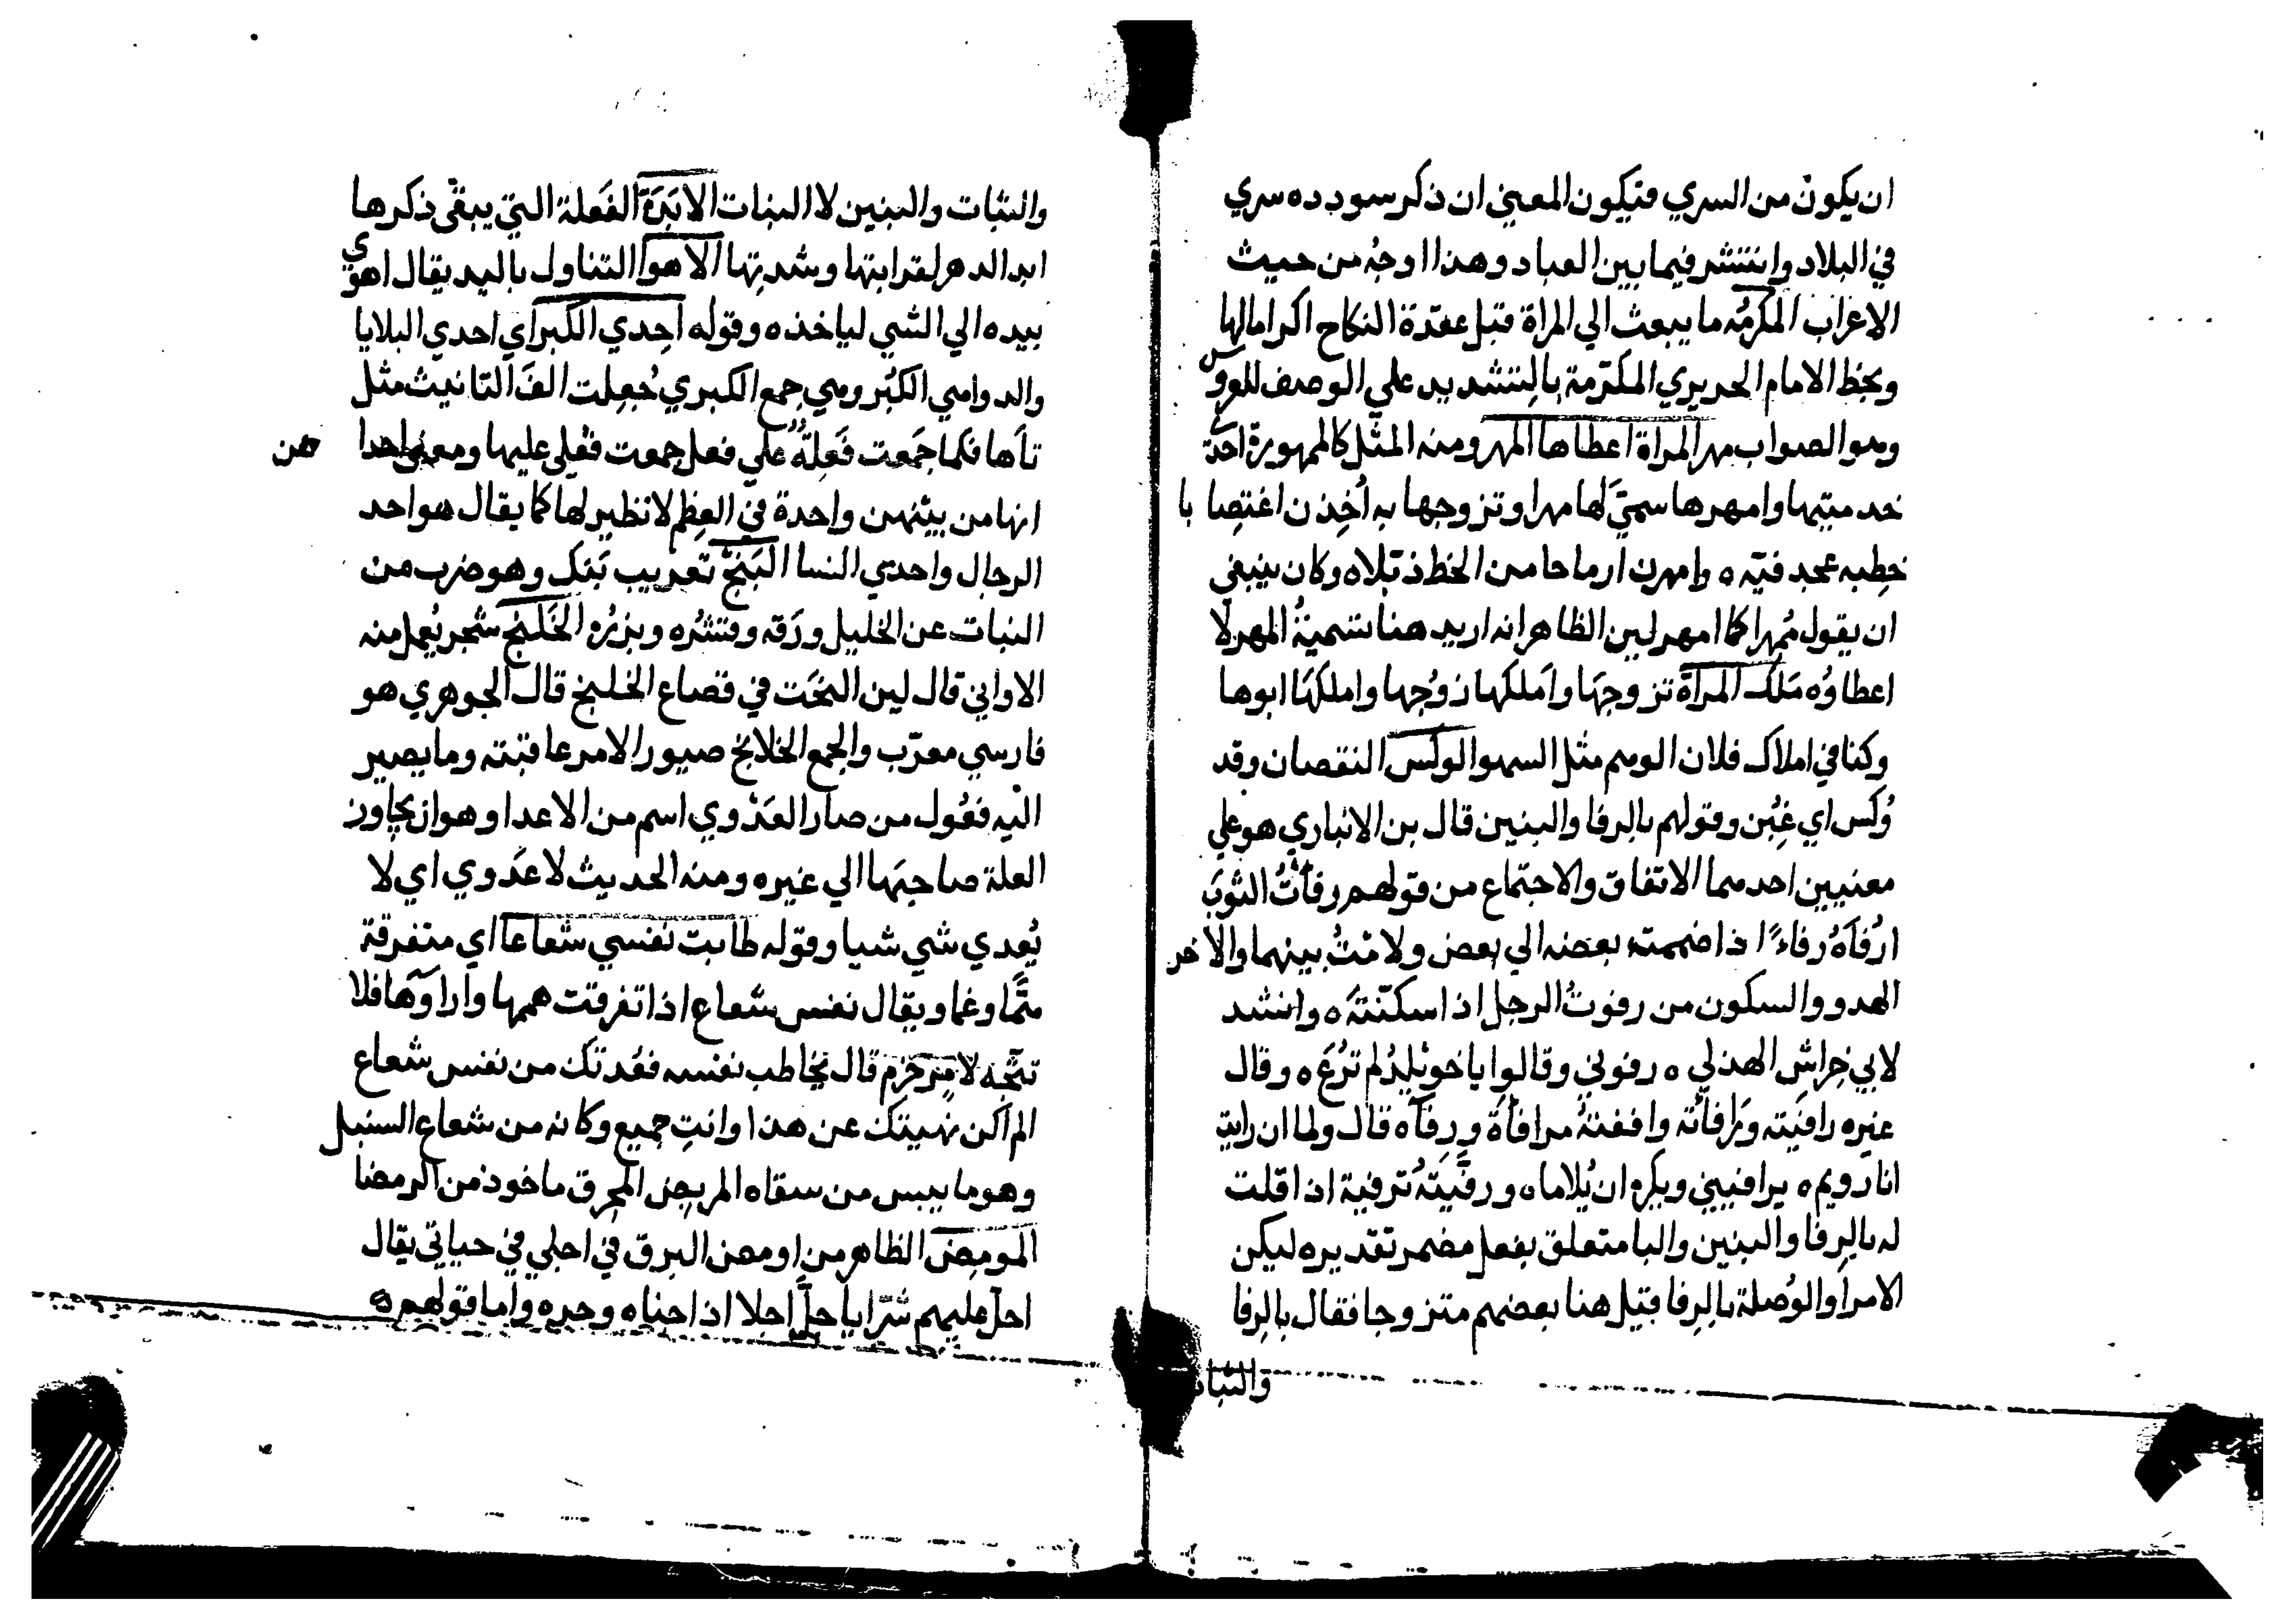 ان يكون من السري فتكون المعني ان ذكر سودده سري
في البلاد وانتشر فيما بين العباد وهذا اوجُه من حيث
الاعراب المكرمُه ما يبعث الي المراة قبل عقدة النكاح اكراما لها
وبخط الامام الحريري المكرّمة بالتشديد علي الوصف للعروس
وهو الصواب مهر المراة اعطاها المهر ومنه المثل كالممهورة احدي
خدمتيها وامهرها سمّي لها مهرا وتزوجها به اُخِذن اغتِصابا
خِطبه عجرفيّه ٥ وامهرن ارماحا من الخط ذبّلا٥ وكان ينبغي
ان يقول مُهرا كما امهر لبن الظاهر انه اريد هنا تسميةُ المهر لا
اعطاؤه مَلَك المراةَ تزوجَها واَملكها زوُجها واملكهَا ابوها
وكنا في املاك فلان الوهم مثل السهو الوكس النقصان وقد
وُكس اي غُبن وقولهم بالرفا والبنين قال بن الانباري هو علي
معنيين احدهما الاتفاق والاجتماع من قولهم رفأتُ الثوبَ
ارْفأهُ رفاءً اذا ضممته بعضه الي بعض ولامْتُ بينهما والاخر
الهدو والسكون من رفوتُ الرجل اذا اسكنّتَه ٥ وانشد
لابي خِراش الهذلي ٥ رفوني وقالوا يا خويلدُ لم تُرَع ٥ وقال
غيره رافيَته ورَافأته وافقتهُ مرافاَة ورِفآه قال ولما ان رايت
انا رويم ٥ يرافييني ويكره ان يُلاما٥ ورفَّيتهُ ترفية اذا قلت
له بالرِفا والبنين والبا متعلق بفعل مضمر تقديره ليكن
الامر اوالوُصلة بالرِفا قيل هنا بعضهم متزوجا فقال بالرِفا
والثبات
والثبات والبنين لا البنات الابَدَةَ الفَعلة التي يبقّي ذكرها
ابد الدهر لقرابتها وشدتها الاهوا التناول باليد يقال اهوي
بيده الي الشي لياخذه وقوله اِحدي الكبر اي احدي البلايا
والدواهي الكُبَر وهي جمع الكبري جُعِلت الفَ التانيث مثل
تأها فكما جَمَعت فَعِلةٌ علي فعل جمعت فُعْلي عليها ومعني احدا هن
انها من بينهن واحدة في العِظم لا نظير لها كما يقال هو احد
الرجال واحدي النسا البَنجُ تعريب بَنك وهو ضرب من
النبات عن الخليل ورَقه وقشرُه وبزرُه الخَلَنج شجر يُعمل منه
الاواني قال لبن البُخَت في قصاع الخلنج قال الجوهري هو
فارسي معرّب والجمع الخلانج صيور الامر عاقبته وما يصير
اليه فعُول من صار العَدْوي اسم من الاعدا وهو ان يجاوز
العلة صاحبَها الي غيره ومنه الحديث لا عَدوي اي لا
يُعدي شي شيا وقوله طابت نفسي شَعاعا اي متفرقة
همّا وغما ويقال نفس شَعاع اذا تفرقت هممها وارآوَها فلا
تتّجه لامرٍ حزم قال يخاطب نفسه فقدتك من نفس شعاع
الم اكن نهيتك عن هذا وانتِ جميع وكانه من شعاع السنبل
وهو ما يبس من سفاه المربض المحرق ماخوذ من الرمضا
المومِض الظاهر من اومض البرق في اجلي في حياتي يقال
اجل عليهم شرّا ياجل اجلا اذا جناه وجره واما قولهم ٥